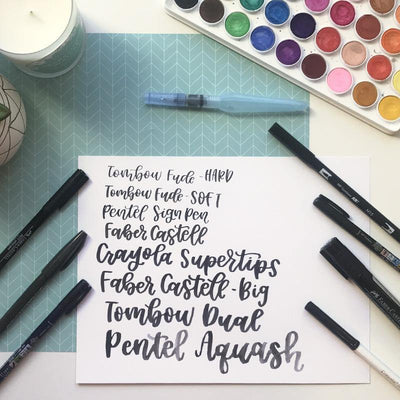 Tombow Fude - HARD
Tombow Fude - SOFT
Pentel Sign Pen
Faber Castell
Crayola Supertips
Faber Castell - Big
Tombow Dual
Pentel Aquash